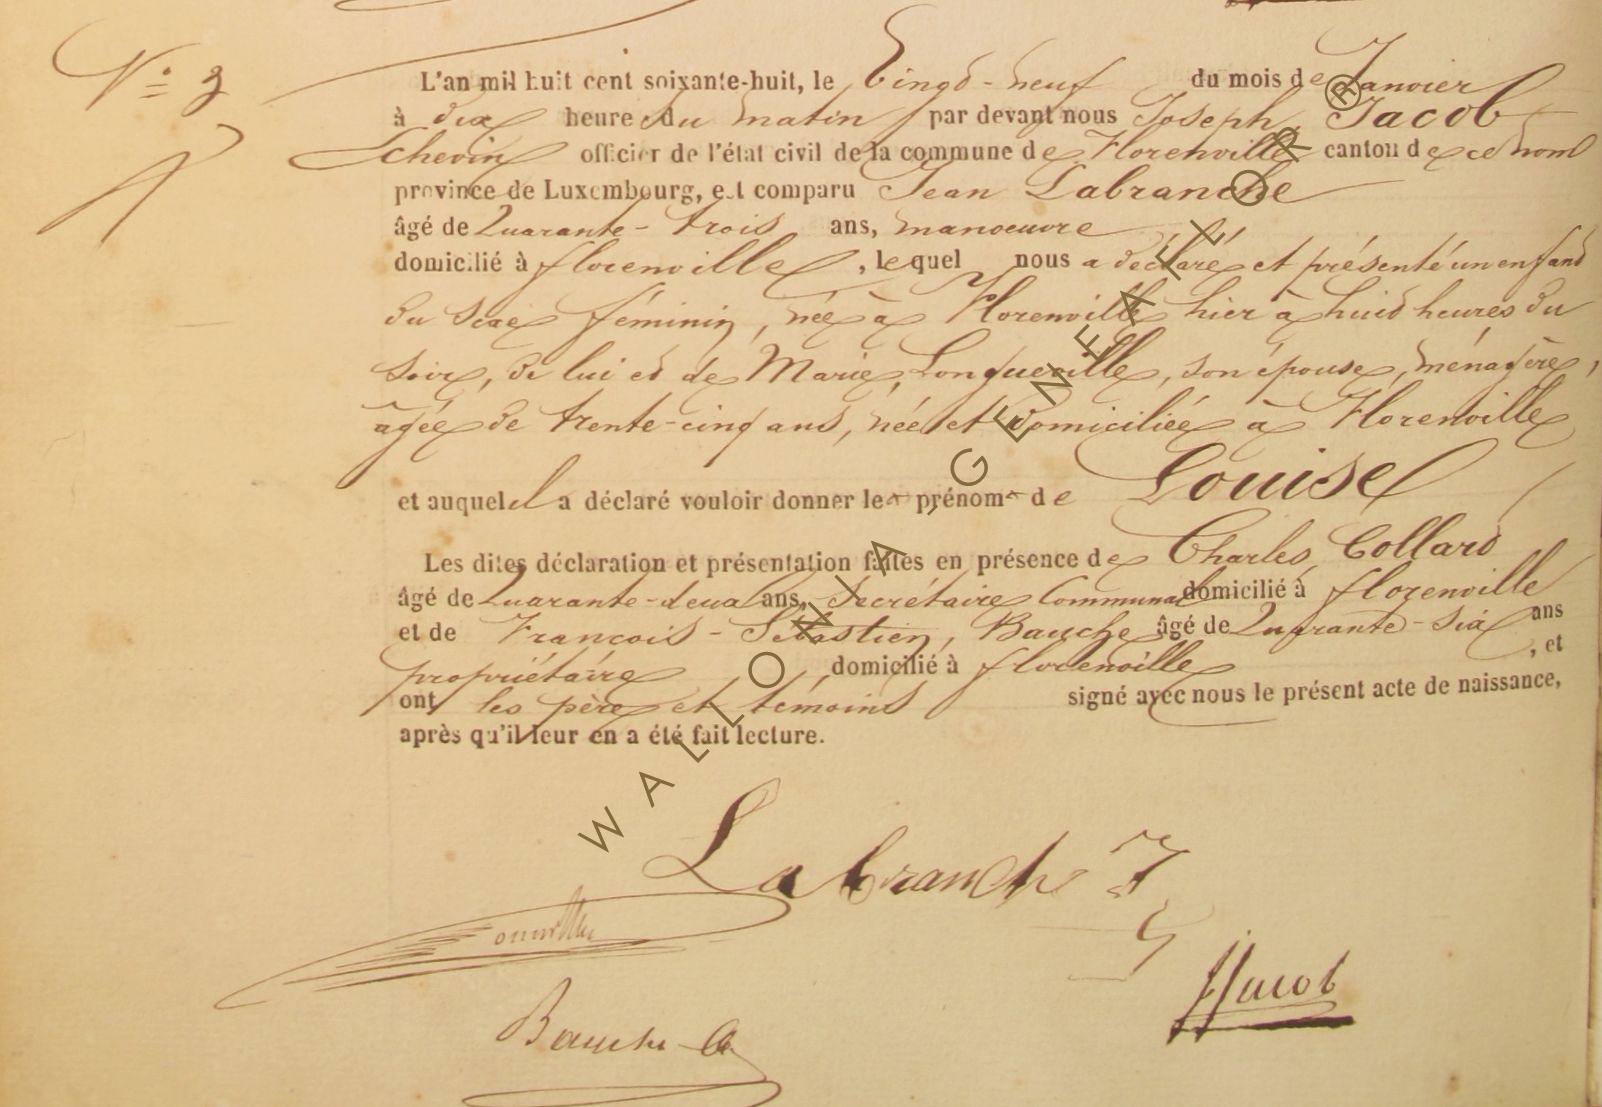 N° 3
L'an mil huit cent soixante-huit, le Vingt-neuf du mois de Janvier
à dix heure du matin par devant nous Joseph Jacob
Echevin officier de l'état civil de la commune de Florenville canton de ce nom
province de Luxembourg, est comparu Jean Labranche
âgé de Quarante-trois ans, manoeuvre
domicilié à florenville, lequel nous a déclaré et présenté un enfant
du sexe féminin, née à Florenville hier à huit heures du
soir, de lui et de Marie Longueville, son épouse, ménagère,
âgée de trente-cinq ans, née et domiciliée à Florenville
et auquel il a déclaré vouloir donner le prénom de Louise
Les dites déclaration et présentation faites en présence de Charles Collard
âgé de Quarante-deux ans, Secrétaire Communal domicilié à florenville
et de François-Sébastien, Bauche âgé de Quarante-six ans
propriétaire domicilié à florenville, et
ont les père et témoins signé avec nous le présent acte de naissance,
après qu'il leur en a été fait lecture.
Labranche J
JJacob
Bauche
WALLONIA, GENEAFLOR ®